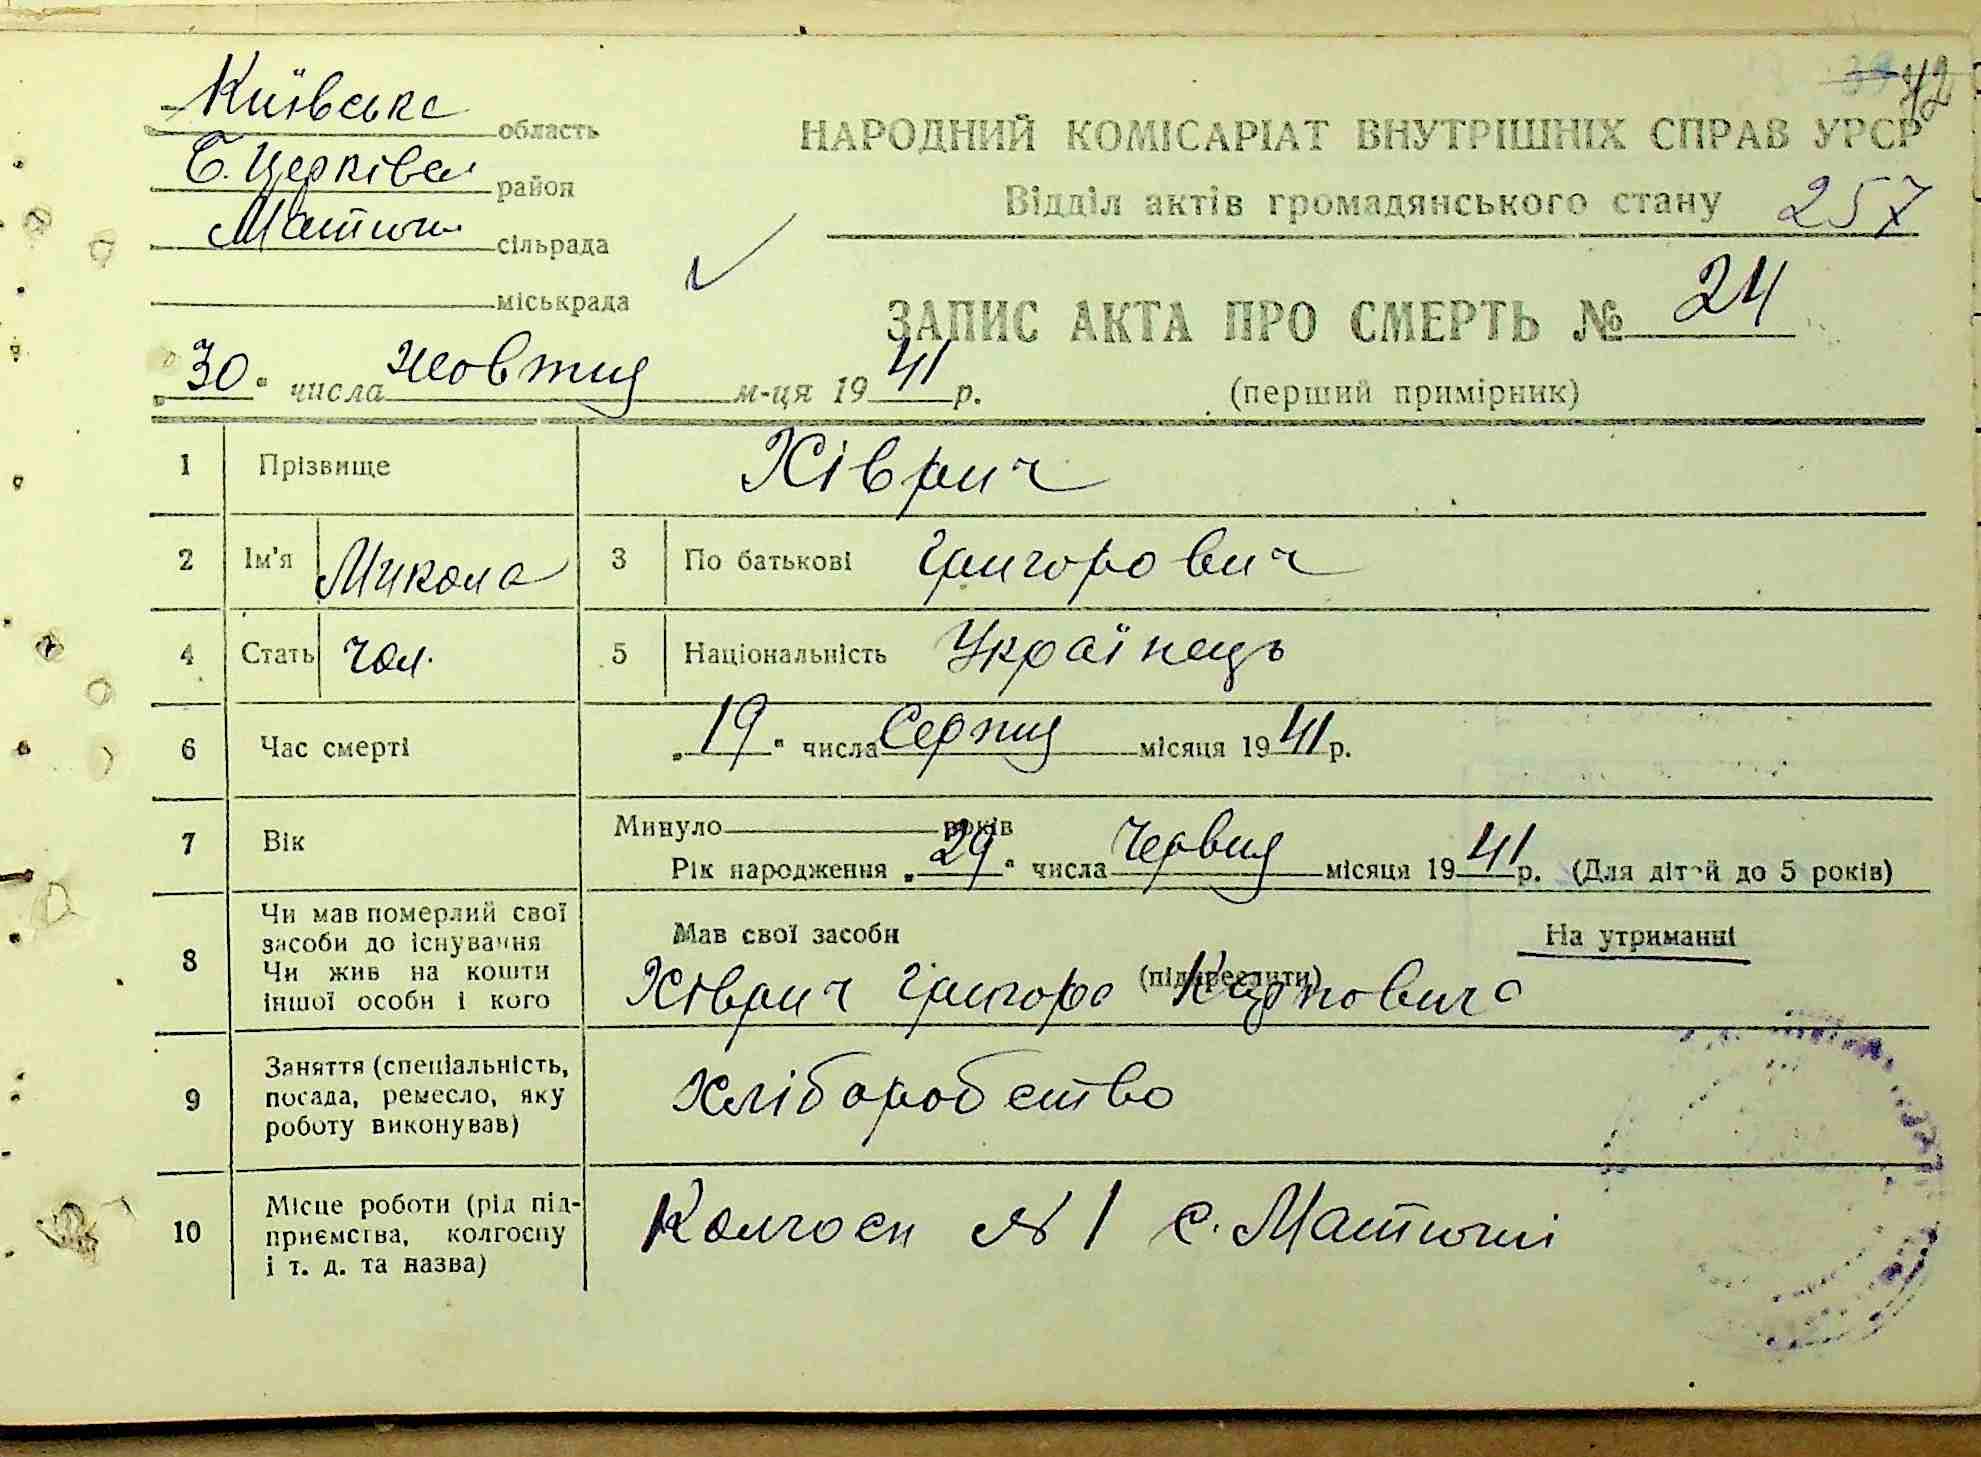 Київська область
Б. Церківськ район
Матюш сільрада
міськрада
42
НАРОДНИЙ КОМІСАРІАТ ВНУТРІШНІХ СПРАВ УРСР
Відділ актів громадянського стану 257
ЗАПИС АКТА ПРО СМЕРТЬ № 24
„30" числа жовтня м-ця 1941 р.
(перший примірник)
1 Прізвище Хіврич
2 Ім'я Микола 3 По батькові Григорович
4 Стать чол. 5 Національність Українець
6 Час смерті „19" числа Серпня місяця 1941 р.
7 Вік Минуло років
Рік народження „29" числа Червня місяця 1941 р. (Для дітей до 5 років)
8 Чи мав померлий свої засоби до існування Чи жив на кошти іншої особи і кого
Мав свої засоби На утриманні
(підкреслити)
Хіврич Григора Карповича
9 Заняття (спеціальність, посада, ремесло, яку роботу виконував) Хліборобство
10 Місце роботи (рід підприємства, колгоспу і т. д. та назва) Колгосп № 1 с. Матюші